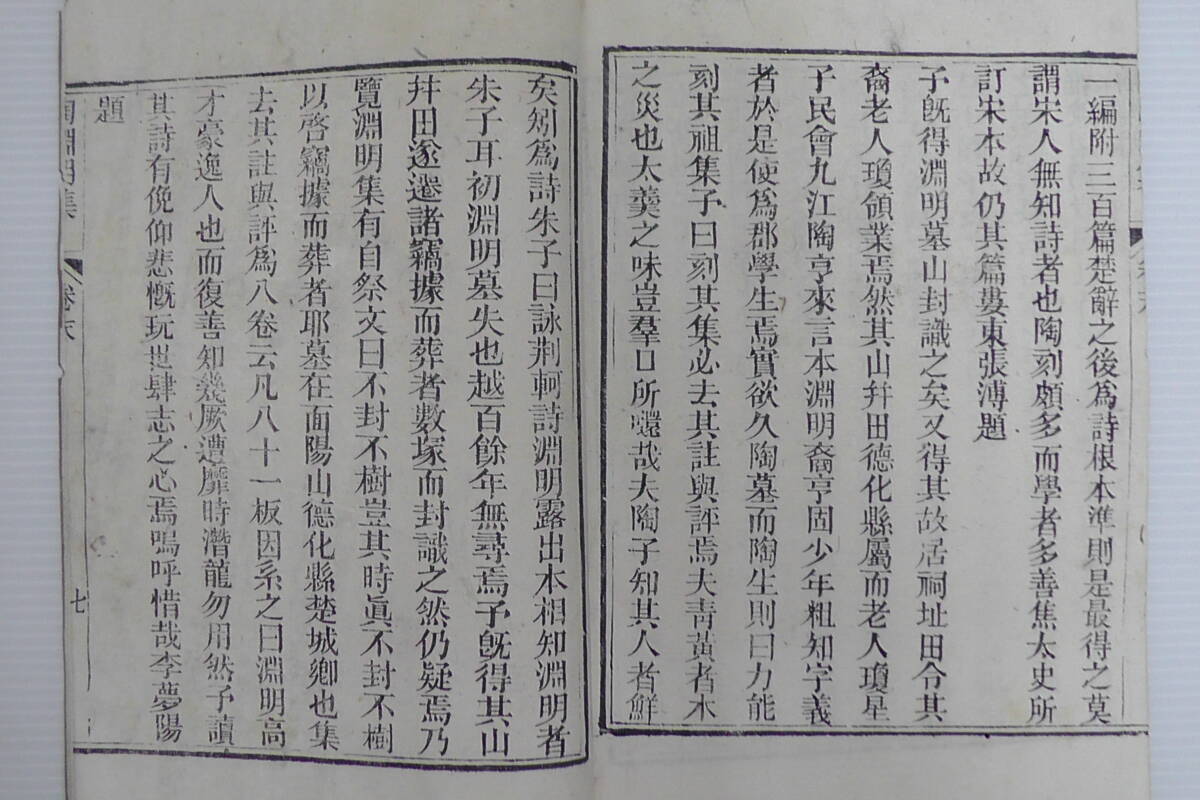 一編附三百篇楚辭之後爲詩根本準則是最得之莫
謂宋人無知詩者也陶刻頗多而學者多善焦太史所
訂宋本故仍其篇婁東張溥題
予旣得淵明墓山封識之矣又得其故居祠址田令其
裔老人瓊領業焉然其山幷田德化縣屬而老人瓊星
子民會九江陶亨來言本淵明裔亨固少年粗知字義
者於是使爲郡學生焉實欲久陶墓而陶生則曰力能
刻其祖集予曰刻其集必去其註與評焉夫靑黃者木
之災也太羹之味豈羣口所嚵哉夫陶子知其人者鮮
矣矧爲詩朱子曰詠荆軻詩淵明露出本相知淵明者
朱子耳初淵明墓失也越百餘年無尋焉予旣得其山
幷田遂遷諸竊據而葬者數塚而封識之然仍疑焉乃
覽淵明集有自祭文曰不封不樹豈其時眞不封不樹
以啓竊據而葬者耶墓在面陽山德化縣楚城鄉也集
去其註與評爲八卷云凡八十一板因系之曰淵明高
才豪逸人也而復善知幾厥遭靡時潛龍勿用然予讀
其詩有俛仰悲慨玩世肆志之心焉嗚呼惜哉李夢陽
題
陶淵明集
卷末
七